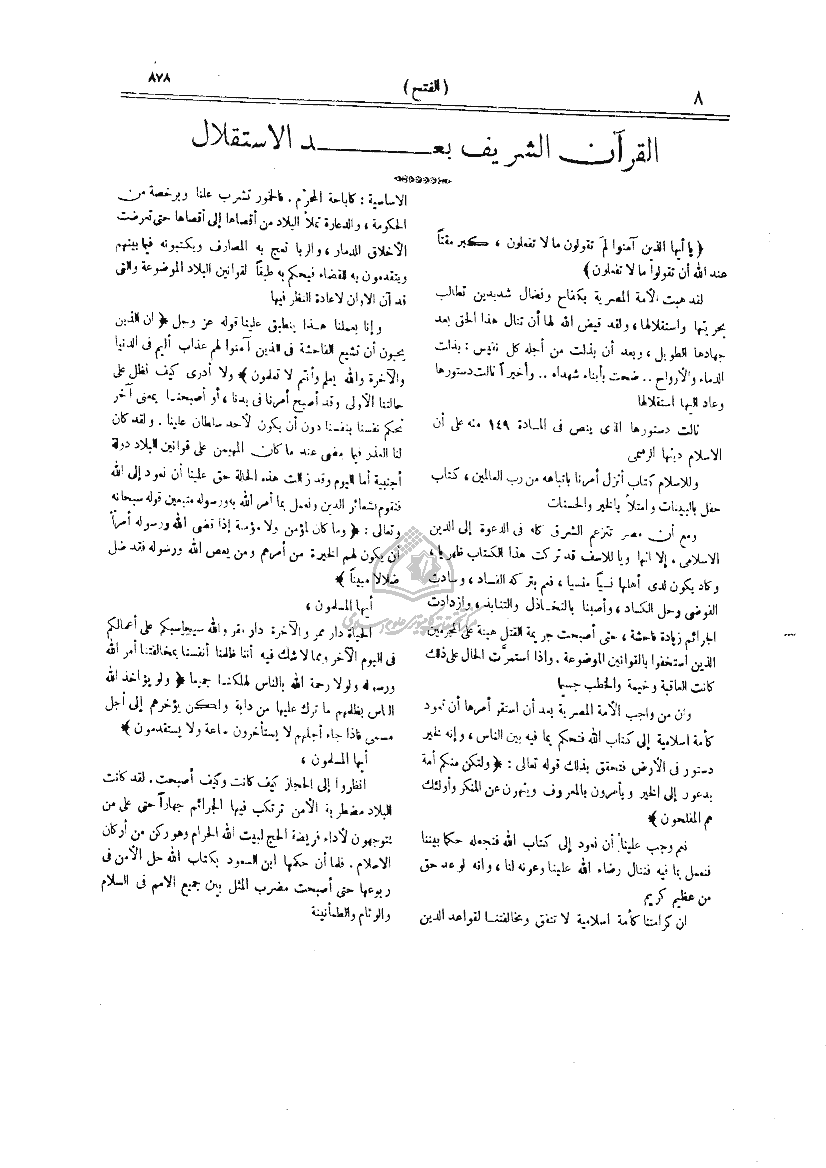 ٨
(الفتح)
٨٧٨
القرآن الشريف بعـــــد الاستقلال
﴿ يا أيها الذين آمنوا لم تقولون ما لا تفعلون ، كبر مقتاً
عند الله أن تقولوا ما لا تفعلون ﴾
لقد هبت الأمة المصرية بكفاح ونضال شديدين تطالب
بحريتها واستقلالها ، ولقد قيض الله لها أن تنال هذا الحق بعد
جهادها الطويل ، وبعد أن بذلت من أجله كل نفيس : بذلت
الدماء والأرواح .. ضحت بأبناء شهداء .. وأخيراً نالت دستورها
وعاد اليها استقلالها
نالت دستورها الذى ينص فى المادة ١٤٩ منه على أن
الاسلام دينها الرسمى
وللاسلام كتاب أنزل أمرنا باتباعه من رب العالمين ، كتاب
حفل بالبينات وامتلأ بالخير والحسنات
ومع أن مصر تتزعم الشرق كله فى الدعوة إلى الدين
الاسلامى . إلا انها ويا للاسف قد تركت هذا الكتاب ظهريا ،
وكاد يكون لدى أهلها نسياً منسيا ، فعم بتركه الفساد ، وسادت
الفوضى وحل الكساد ، وأصبنا بالتخاذل والتنابذ ، وازدادت
الجرائم زيادة فاحشة ، حتى أصبحت جريمة القتل هينة على المجرمين
الذين استخفوا بالقوانين الموضوعة . واذا استمرَّت الحال على ذلك
كانت العاقبة وخيمة والخطب جسيما
وان من واجب الأمة المصرية بعد أن استقر أمرها أن تعود
كأمة اسلامية إلى كتاب الله فتحكم بما فيه بين الناس ، وإنه لخير
دستور فى الأرض فتحقق بذلك قوله تعالى : ﴿ ولتكن منكم أمة
يدعون إلى الخير ويأمرون بالمعروف وينهون عن المنكر وأولئك
هم المفلحون ﴾
نعم وجب علينا أن نعود إلى كتاب الله فنجعله حكما بيننا
فنعمل بما فيه فننال رضاء الله علينا وعونه لنا ، وانه لوعد حق
من عظيم كريم
ان كرامتنا كأمة اسلامية لا تتفق ومخالفتنا لقواعد الدين
الاساسية : كاباحة المحرّم . فالخمور تشرب علنا وبرخصة من
الحكومة ، والدعارة تملأ البلاد من أقصاها إلى أقصاها حتى تعرضت
الأخلاق للدمار ، والربا تعج به المصارف ويكتبونه فيما بينهم
ويتقدمون به للقضاء فيحكم به طبقاً لقوانين البلاد الموضوعة والتى
قد آن الاوان لاعادة النظر فيها
وإنا بعملنا هذا ينطبق علينا قوله عز وجل ﴿ ان الذين
يحبون أن تشيع الفاحشة فى الذين آمنوا لهم عذاب أليم فى الدنيا
والآخرة والله يعلم وأنتم لا تعلمون ﴾ ولا أدرى كيف نظل على
حالتنا الأولى وقد أصبح أمرنا فى يدنا ، أو أصبحنا بمعنى آخر
نحكم نفسنا بنفسنا دون أن يكون لأحد سلطان علينا . ولقد كان
لنا العذر فيما مضى عند ما كان المهيمن على قوانين البلاد دولة
أجنبية أما اليوم وقد زالت هذه الحالة حق علينا أن نعود إلى الله
فنقوم بشعائر الدين ونعمل بما أمر الله به ورسوله متبعين قوله سبحانه
وتعالى : ﴿ وما كان لمؤمن ولا مؤمنة إذا قضى الله ورسوله أمراً
أن يكون لهم الخيرة من أمرهم ومن يعص الله ورسوله فقد ضل
ضلالا مبيناً ﴾
أيها المسلمون ،
الحياة دار ممر والآخرة دار مقر والله سيحاسبكم على أعمالكم
فى اليوم الآخر ومما لا شك فيه أننا ظلمنا أنفسنا بمخالفتنا أمر الله
ورسوله ولولا رحمة الله بالناس لهلكنا جميعا ﴿ ولو يؤاخذ الله
الناس بظلمهم ما ترك عليها من دابة ولكن يؤخرهم إلى أجل
مسمى فاذا جاء أجلهم لا يستأخرون ساعة ولا يستقدمون ﴾
أيها المسلمون ،
انظروا إلى الحجاز كيف كانت وكيف أصبحت . لقد كانت
البلاد مضطربة الأمن ترتكب فيها الجرائم جهاراً حتى على من
يتوجهون لأداء فريضة الحج لبيت الله الحرام وهو ركن من أركان
الاسلام . فلما أن حكمها ابن السعود بكتاب الله حل الأمن فى
ربوعها حتى أصبحت مضرب المثل بين جميع الامم فى السلام
والوئام والطمأنينة